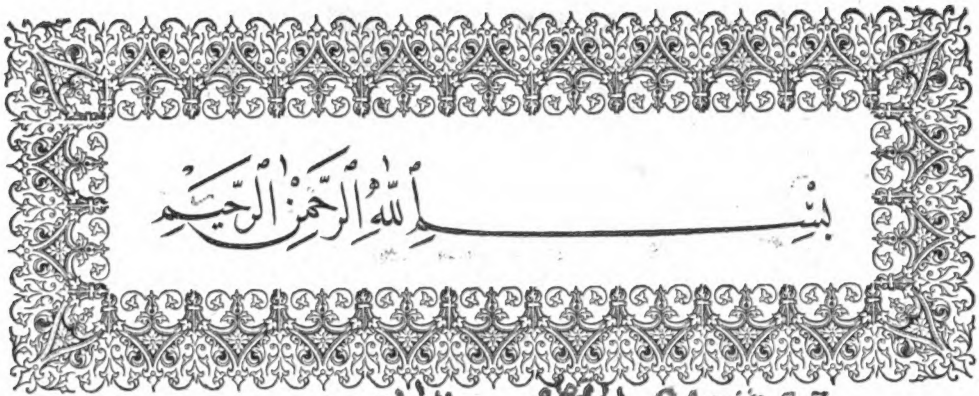 بِسْمِ ٱللّٰهِ ٱلرَّحْمٰنِ ٱلرَّحِيمِ